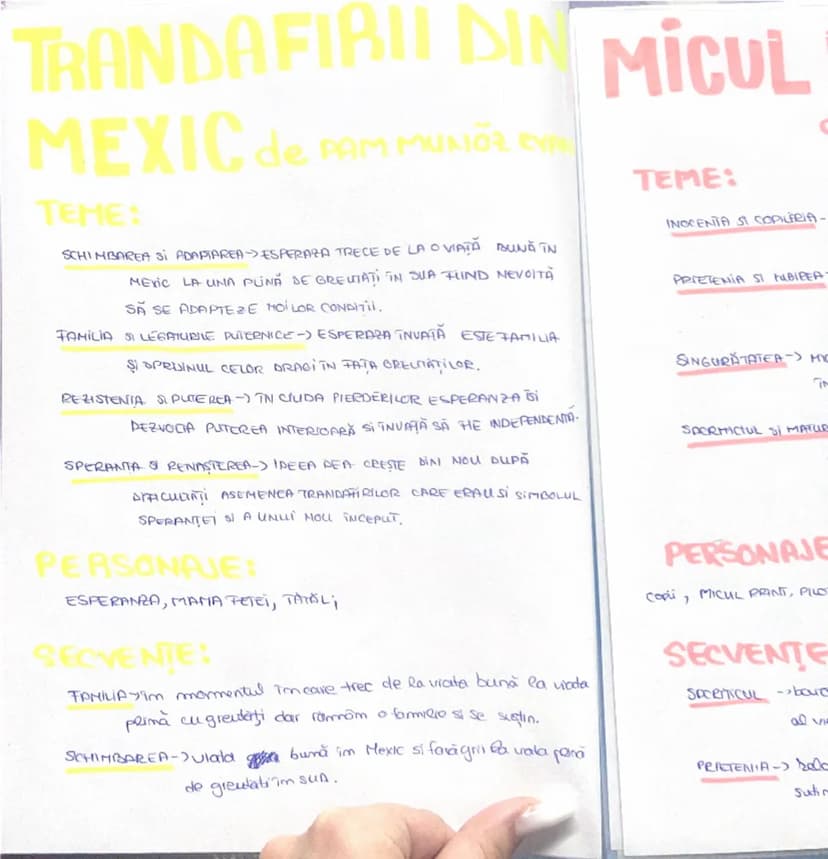 TRANDAFIRII DIN
MEXIC de PAM MUNÕZ
TEME:
SCHIMBAREA SI ADAPTAREA → ESPERAZA TRECE DE LA O VIAȚĂ BUNĂ ÎN
MEXIC LA UNA PLINĂ DE GREUTĂȚI ÎN SUA FIIND NEVOITĂ
SĂ SE ADAPTEZE NOILOR CONDIȚII.
FAMILIA SI LEGATURILE PUTERNICE → ESPERAZA ÎNVAȚĂ ESTE FAMILIA
ȘI SPRIJINUL CELOR DRAGI ÎN FAȚA GREUTĂȚILOR.
REZISTENȚA SI PUTEREA → ÎN CIUDA PIERDERILOR ESPERANZA ÎSI
DEZVOLTA PUTEREA INTERIOARĂ SI ÎNVAȚĂ SĂ FIE INDEPENDENTĂ.
SPERANTA SI RENAȘTEREA → IDEEA DE A CREȘTE DIN NOU DUPĂ
DIFICULTĂȚI ASEMENEA TRANDAFIRILOR CARE ERAU SI SIMBOLUL
SPERANȚEI SI A UNUI NOU ÎNCEPUT.
PERSONAJE:
ESPERANZA, MAMA FETEI, TATĂL;
SECVENȚE:
FAMILIA → în momentul în care trec de la viata bună la viata
plină cu greutăți dar rămân o familie si se susțin.
SCHIMBAREA → viata bună în Mexic si fără griji la viata plină
de greutati în SUA.
MICUL
TEME:
INOCENTA SI COPILĂRIA -
PRIETENIA SI IUBIREA
SINGURĂTATEA →
ÎN
SACRIFICIUL SI
PERSONAJE
Copii, MICUL PRINT,
SECVENȚE
SACRIFICUL →
al
PRIETENIA →